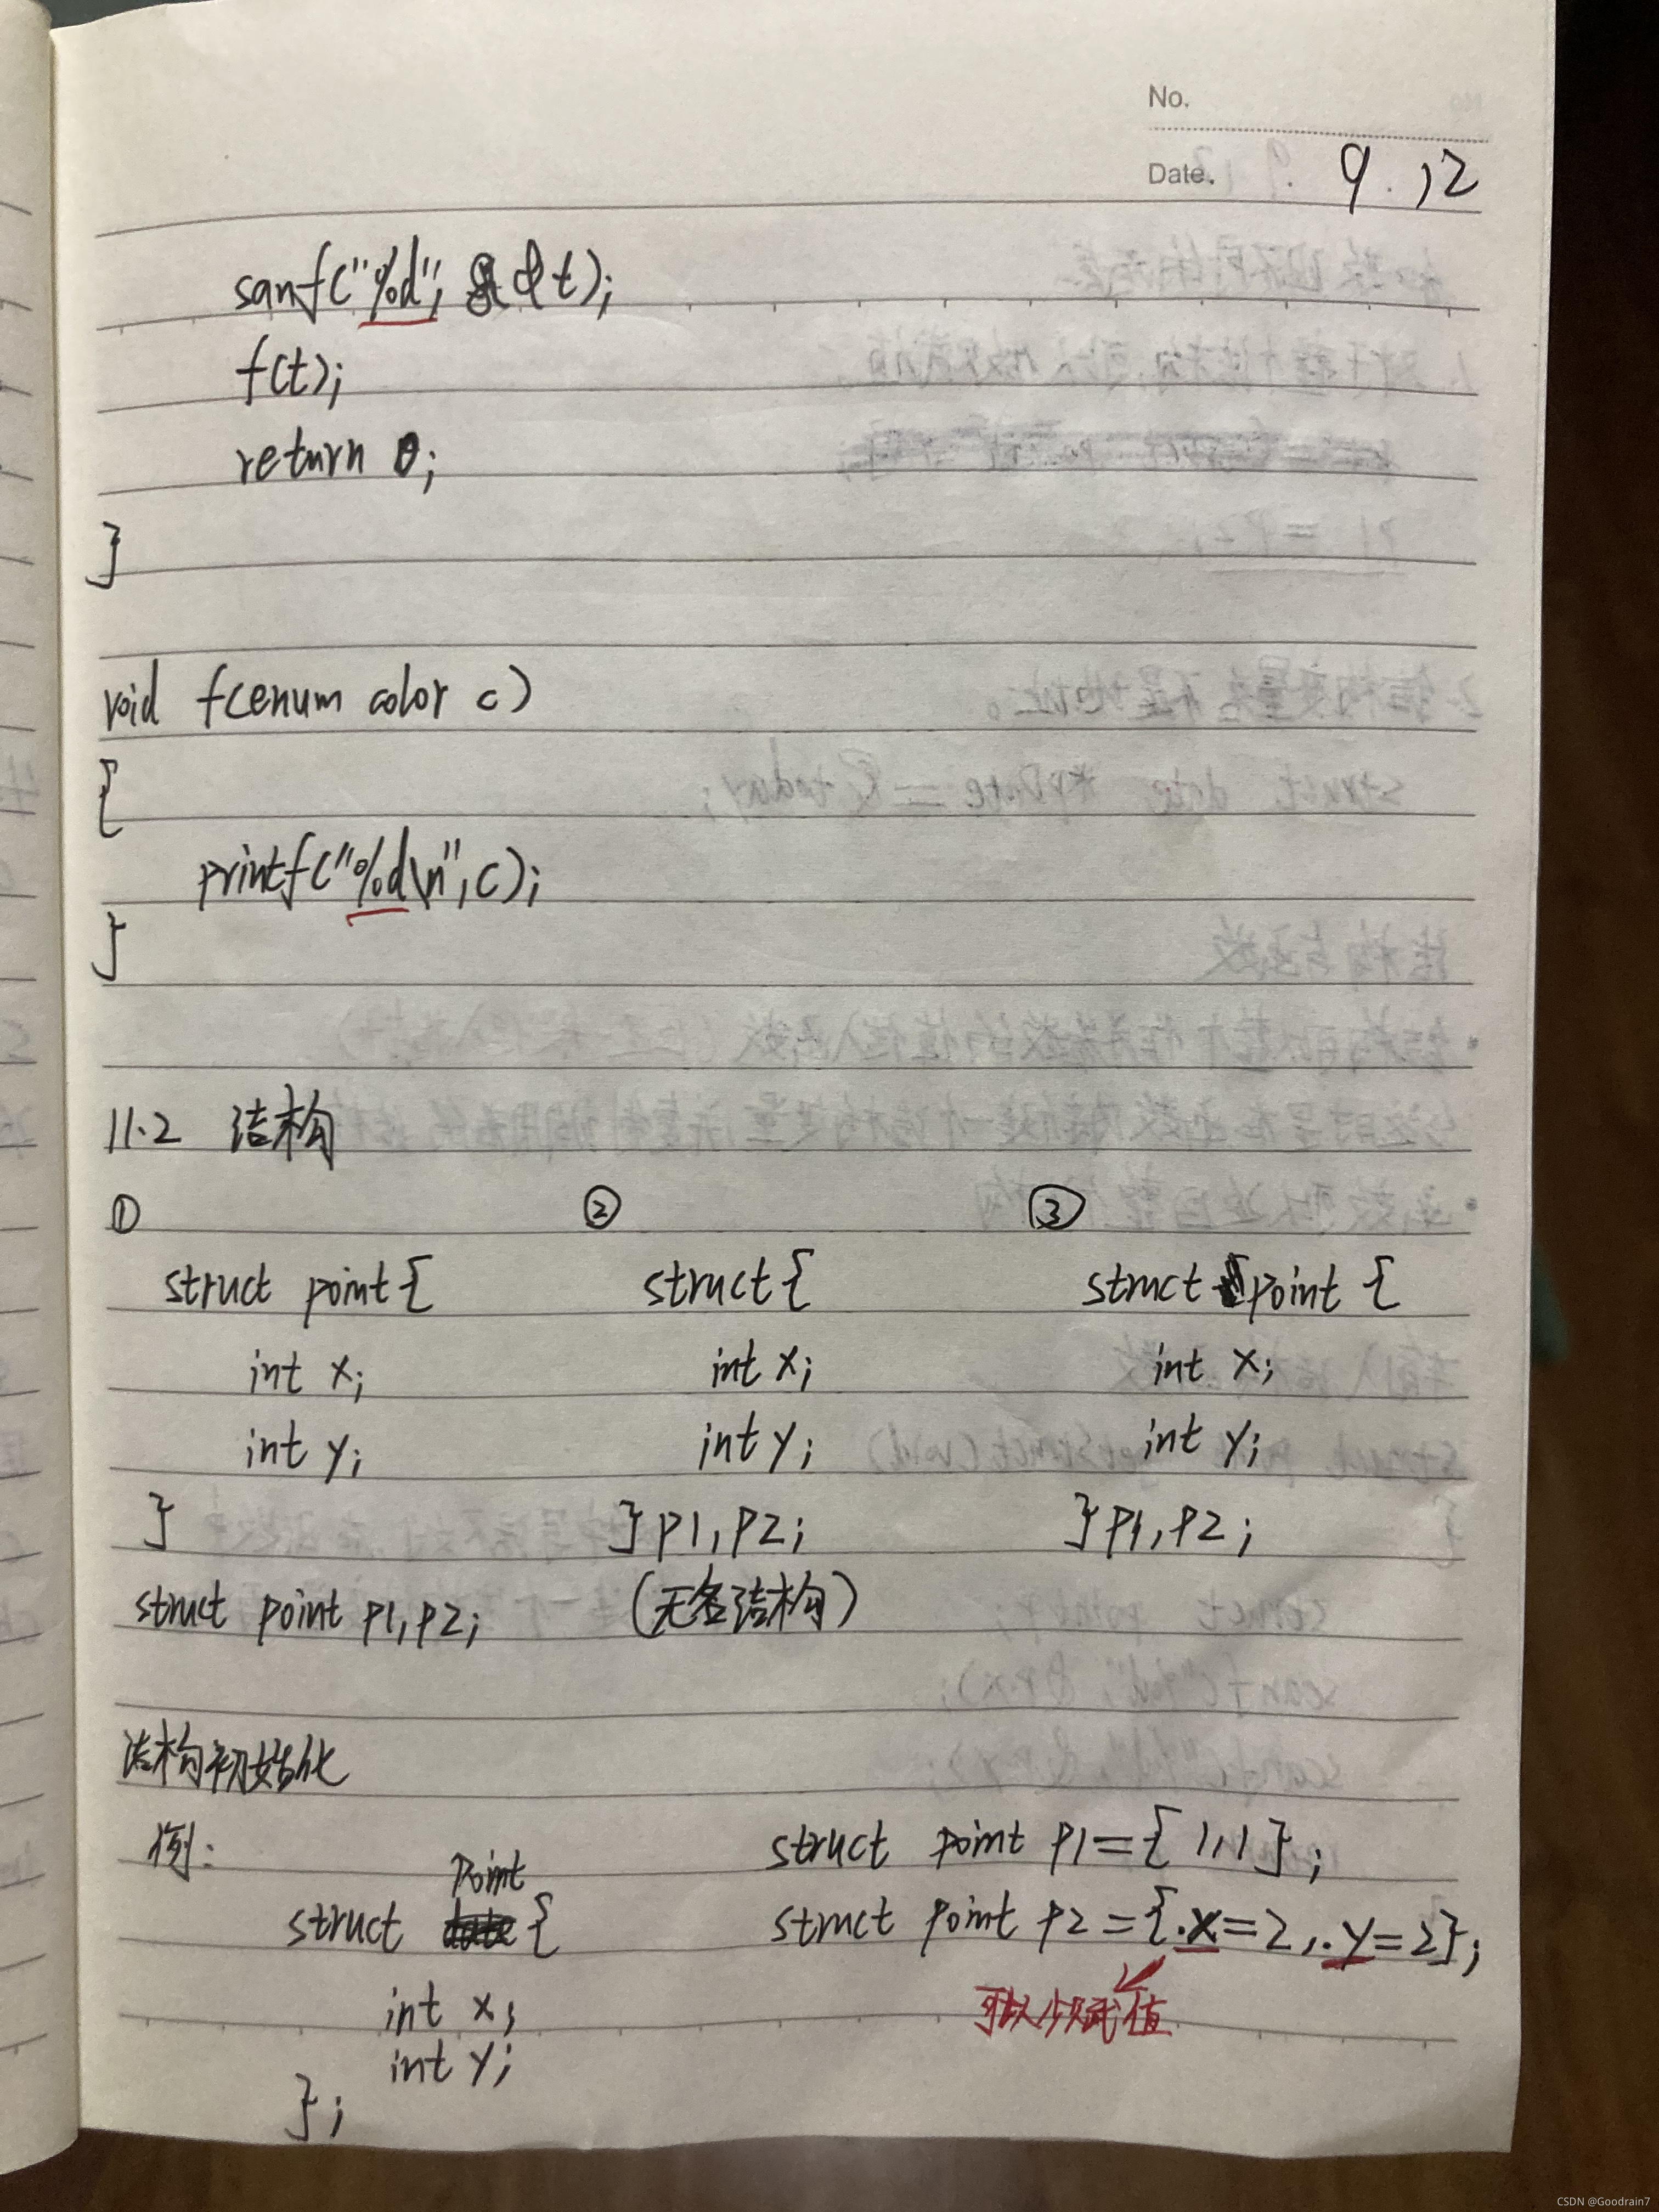 No.
Date. 9.12
sanf("%d", &t);
f(t);
return 0;
}
void f(enum color c)
{
printf("%d\n", c);
}
11.2 结构
① ② ③
struct point{ struct{ struct point {
int x; int x; int x;
int y; int y; int y;
} }p1,p2; }p1,p2;
struct point p1,p2; (无名结构)
结构初始化
例: struct point p1={1,1};
point
struct { struct point p2={.x=2,.y=2};
int x; 可以只赋值
int y;
};
CSDN @Goodrain7